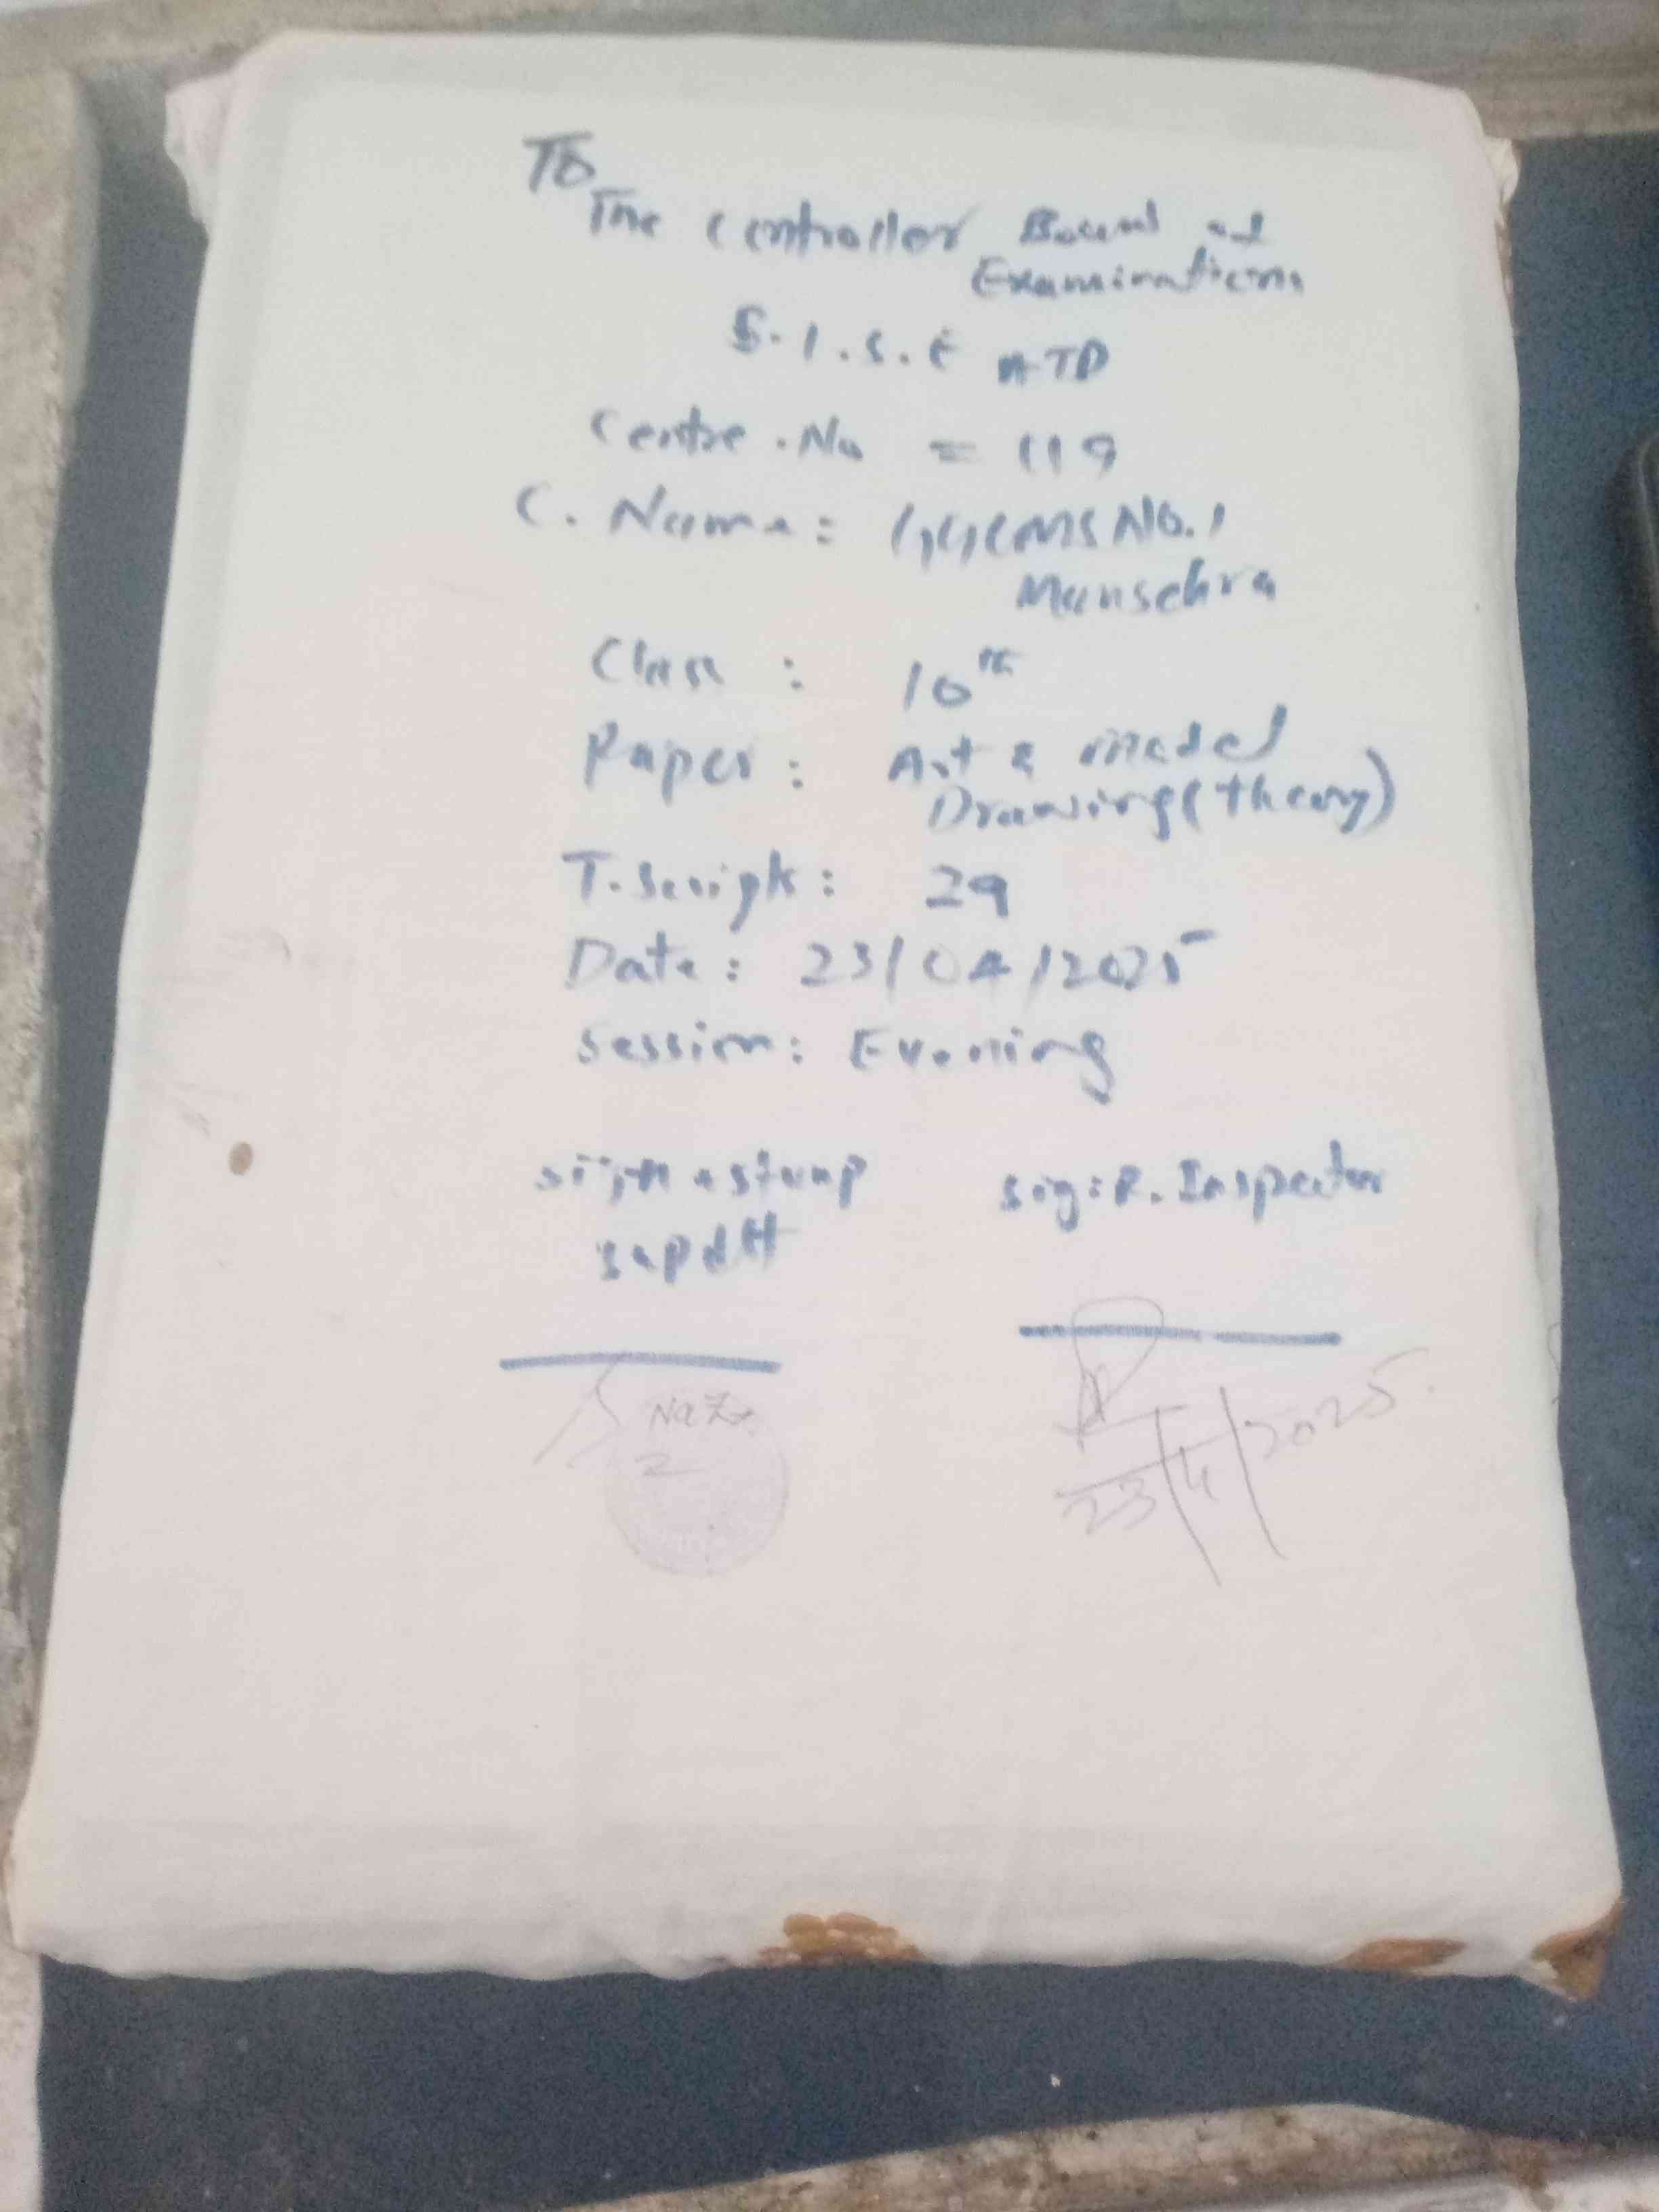 To
The Controller Board of
Examinations
B.I.S.E ATD
Centre.No = 119
C. Name: GGCMS No.1
Mansehra
Class : 10th
Paper: Art & model
Drawing (theory)
T.Script: 29
Date: 23/04/2025
Session: Evening
sign & stamp
sig: R. Inspector
supdtt
Naz
23/4/2025